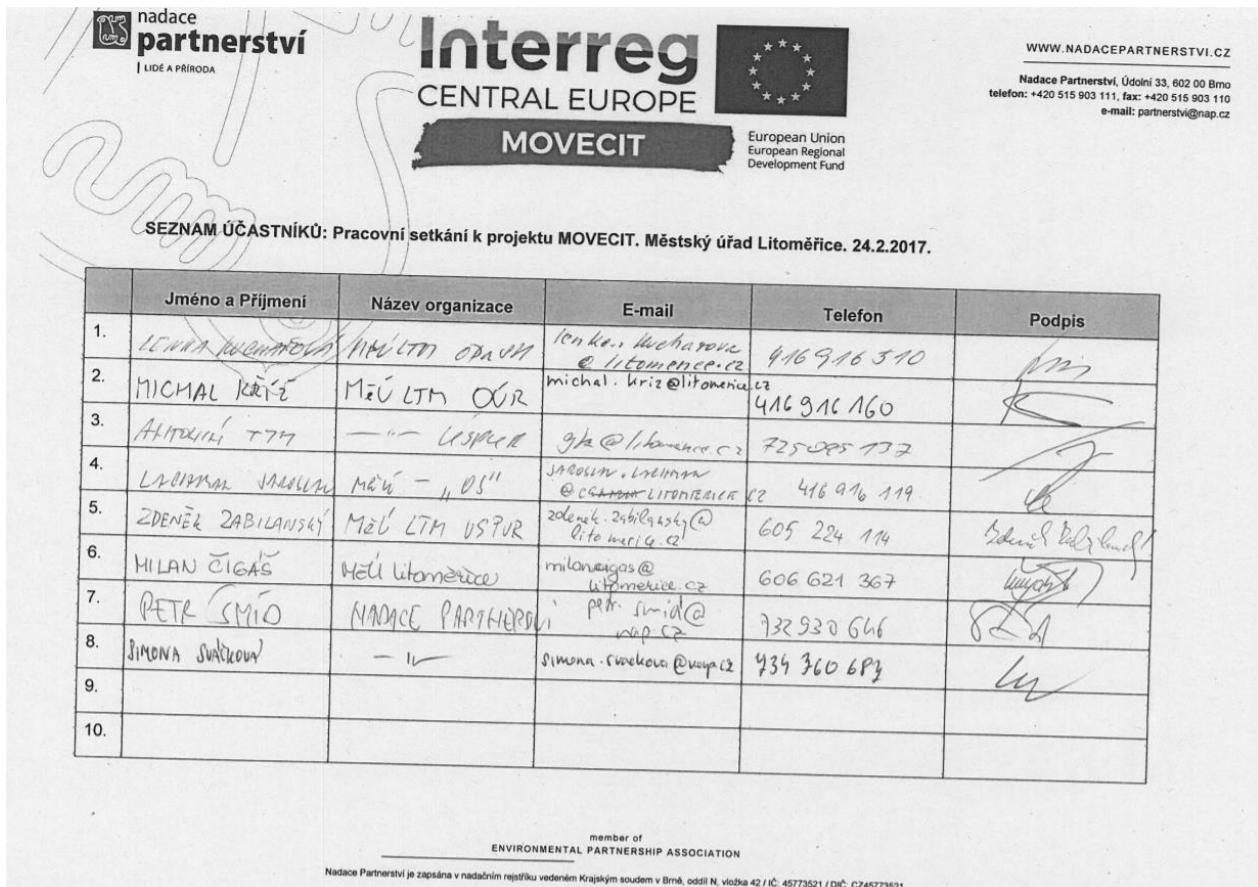 nadace
partnerství
LIDÉ A PŘÍRODA
Interreg
CENTRAL EUROPE
MOVECIT
European Union
European Regional
Development Fund
WWW.NADACEPARTNERSTVI.CZ
Nadace Partnerství, Údolní 33, 602 00 Brno
telefon: +420 515 903 111, fax: +420 515 903 110
e-mail: partnerstvi@nap.cz
SEZNAM ÚČASTNÍKŮ: Pracovní setkání k projektu MOVECIT. Městský úřad Litoměřice. 24.2.2017.
Jméno a Příjmení Název organizace E-mail Telefon Podpis
1. LENKA MěÚ LTM 416 916 310
@litomerice.cz
2. MICHAL KŘÍŽ MěÚ LTM OÚR michal.kriz@litomerice.cz 416 916 160
3. TYM — " — 725 095 137
4. LACHMAN JAROSLAV MěÚ - JAROSLAV.LACHMAN 416 916 119
@ LITOMERICE CZ
5. ZDENĚK ZABILANSKÝ MěÚ LTM zdenek.zabilansky@ 605 224 114
litomerice.cz
6. MILAN ČIGÁŠ MěÚ Litoměřice milan.cigas@ 606 621 367
litomerice.cz
7. PETR ŠMÍD NADACE PARTNERSTVÍ petr.smid@ 732 930 646
nap.cz
8. SIMONA SVAČKOVÁ — " — 734 360 687
9.
10.
member of
ENVIRONMENTAL PARTNERSHIP ASSOCIATION
Nadace Partnerství je zapsána v nadačním rejstříku vedeném Krajským soudem v Brně, oddíl N, vložka 42 / IČ: 45773521 / DIČ: CZ45773521